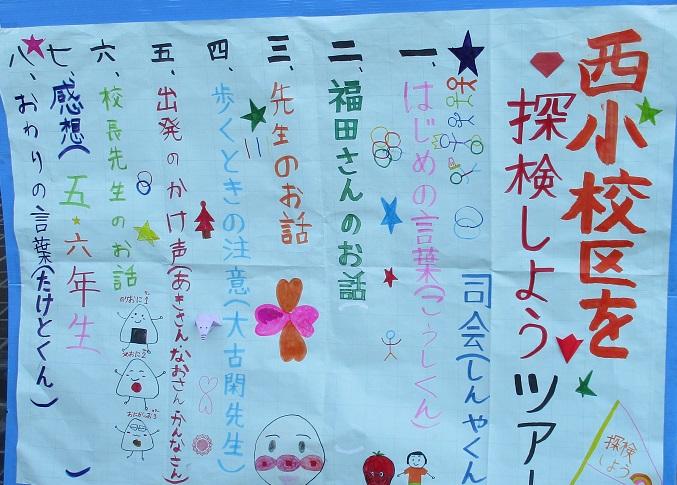 西小校区を
探検しようツアー
司会(しんやくん
一、はじめの言葉(こうしくん)
二、福田さんのお話
三、先生のお話
四、歩くときの注意(大古閑先生)
五、出発のかけ声(あきさんなおさんかんなさん)
六、校長先生のお話
七、感想(五・六年生)
八、おわりの言葉(たけとくん)
探検
しよう